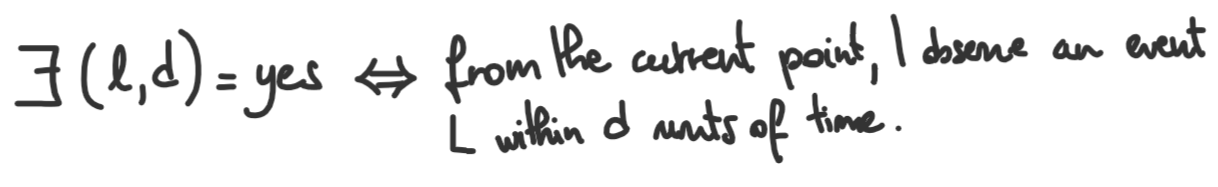 ∃(l,d) = yes ⇔ from the current point, I observe an event
L within d units of time.